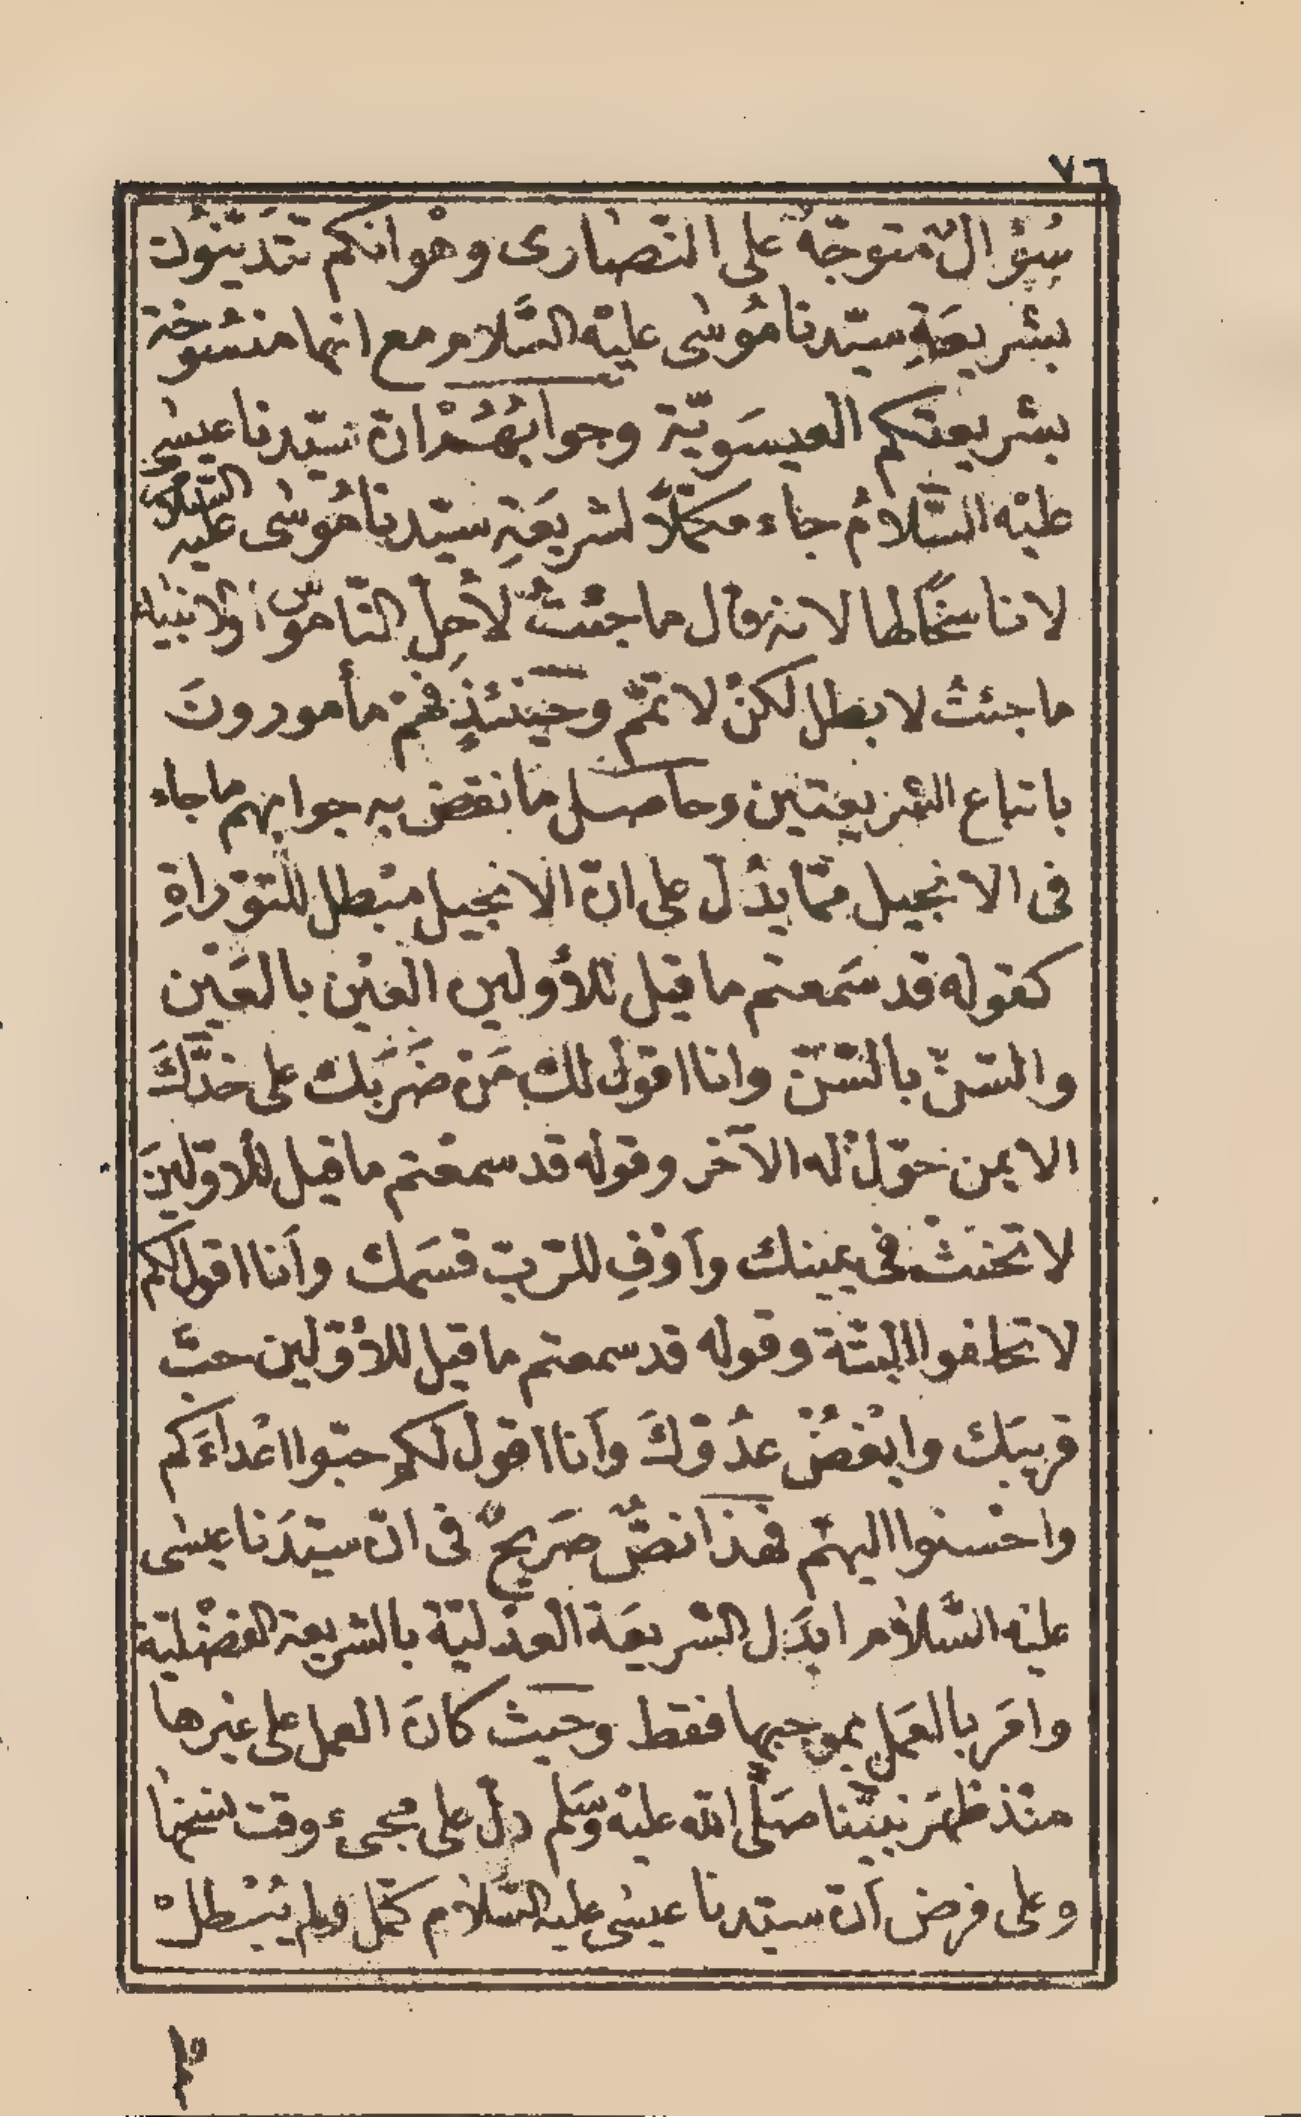 ٧٦
سُؤالٌ متوجّهٌ على النّصارى وهْو انكم تتديّنُون
بشريعَةِ سيّدنا مُوسٰى عليْه السَّلام مع انها منسُوخة
بشريعتكم العيسَويّة وجوابُهُمْ انّ سيّدنا عيسٰى
عليْه السَّلامُ جاء مكمّلاً لشريعَةِ سيّدنا مُوسٰى عليه السَّلام
لا ناسخًا لها لانه قال ما جئتُ لأحِلّ النّاموس او الانبياء
ما جئتُ لابطل لكنْ لاتمّم وحينئذٍ فهم مأمورونَ
باتباع الشريعتين وحاصل ما نقض به جوابهم ما جاء
فى الانجيل ممّا يدُلّ على انّ الانجيل مبْطل للتوْراةِ
كقوله قد سَمعتم ما قيل للأولين العيْن بالعَيْن
والسّنّ بالسّنّ وانا اقول لك مَنْ ضَرَبَك على خدّكَ
الايمن حوّلْ له الآخر وقوله قد سمعْتم ما قيل للاوّلينَ
لا تحنثْ فى يمينك وأوْفِ للرّبّ قسَمك وأنا اقول لكم
لا تحلفوا البتّة وقوله قد سمعتم ما قيل للأوّلين حبّ
قريبَك وابْغضْ عدُوّكَ وأنا اقول لكم حبّوا اعْداءَكم
واحْسنوا اليهمْ فهٰذا نصٌّ صَريحٌ فى انّ سيّدَنا عيسٰى
عليْه السَّلام ابدَل الشّريعَة العدْليّة بالشريعة الفضْليّة
وامَر بالعَمل بموجبها فقط وحيث كانَ العمل على غيْرها
منْذ ظهَر نبيّنا صَلَّى الله عليْه وَسَلم دلّ على مجىء وقت نسْخها
وعلى فرض أنّ سيّدنا عيسٰى عليه السَّلام كمّل ولم يُبْطلْ